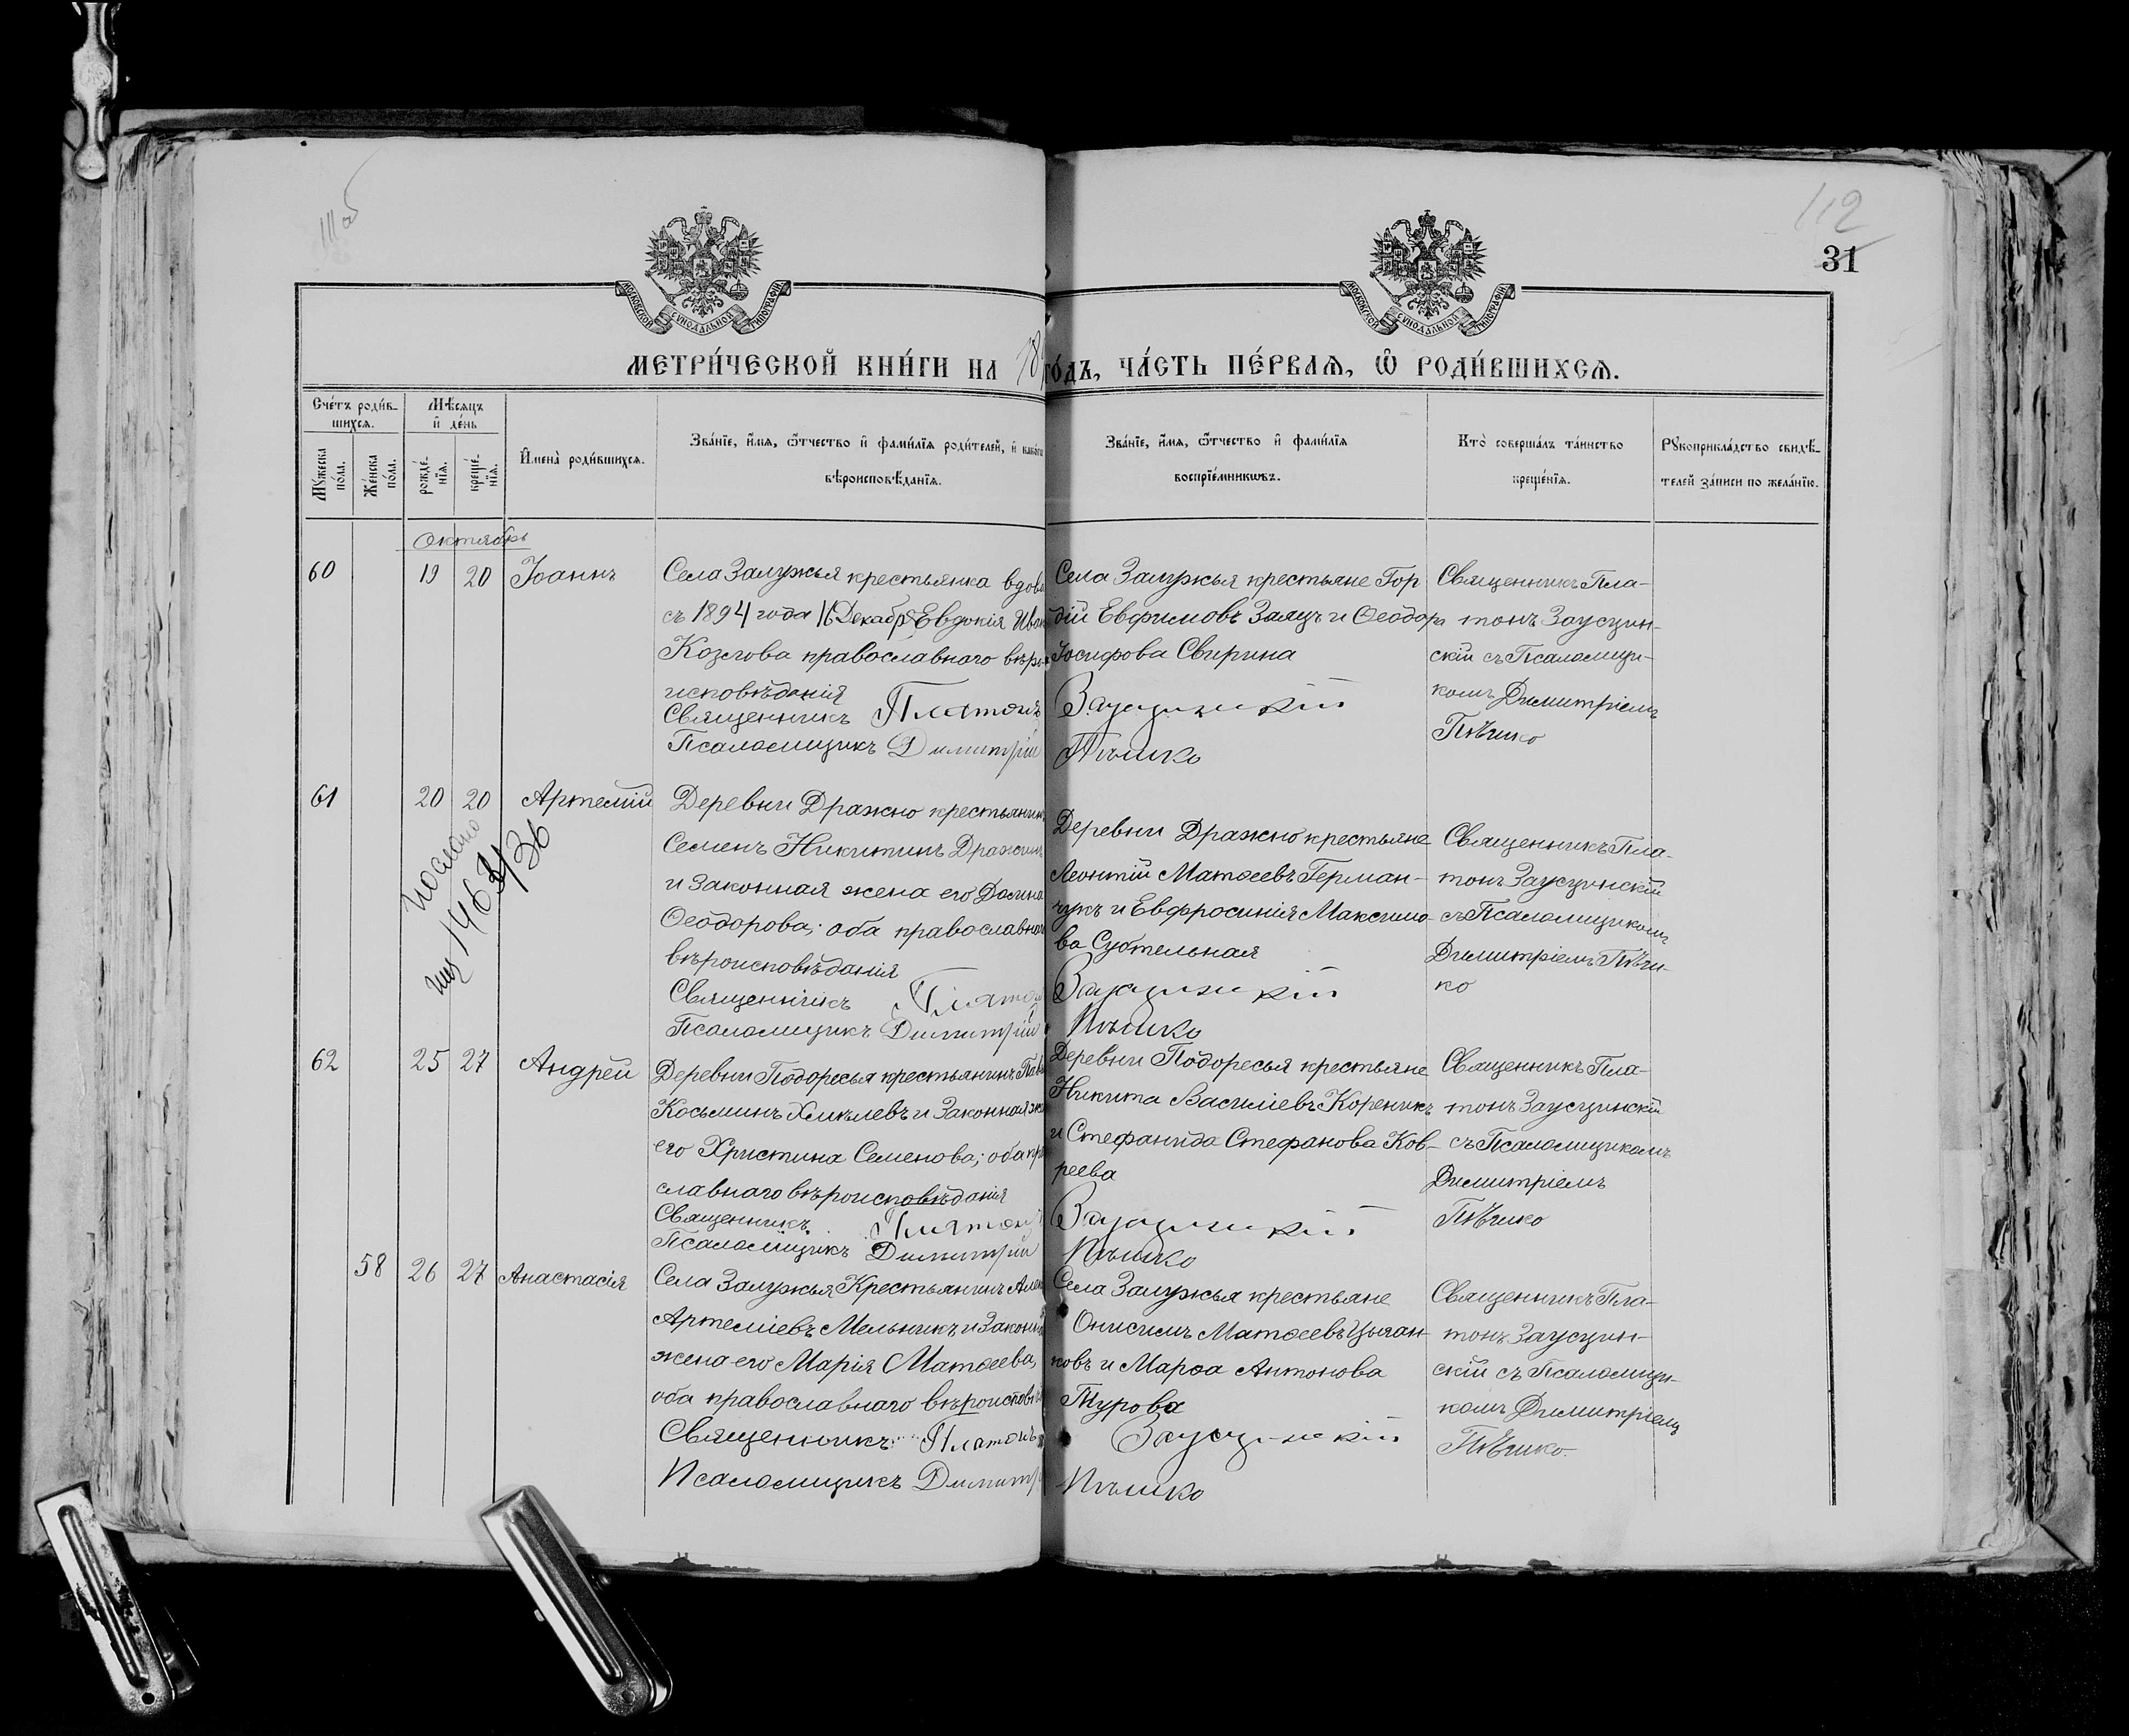 112
31
МОСКОВСКОЙ СУНОДАЛЬНОЙ ТИПОГРАФІИ
МОСКОВСКОЙ СУНОДАЛЬНОЙ ТИПОГРАФІИ
МЕТРИ́ЧЕСКОЙ КНИ́ГИ НА 18 го́дъ, ЧА́СТЬ ПЕ́РВАѦ, Ѽ РОДИ́ВШИХСѦ.
Сче́тъ роди́в-
шихсѧ.
Мѣ́сѧцъ
и҆ де́нь
И҆мена̀ роди́вшихсѧ.
Зва́нїе, и҆́мѧ, ѻ҆́тчество и҆ фами́лїѧ роди́телей, и҆
вѣроисповѣ́данїѧ.
Зва́нїе, и҆́мѧ, ѻ҆́тчество и҆ фами́лїѧ
воспрїе́мникѡвъ.
Кто̀ соверша́лъ та́инство
креще́нїѧ.
Рꙋкоприкла́дство свидѣ́-
телей за́писи по жела́нїю.
Мꙋ́жеска
по́ла.
Же́нска
по́ла.
рожде́-
нїѧ.
креще́-
нїѧ.
Октябрь
60 19 20 Іоаннъ
Села Залужья крестьянка вдова
съ 1894 года 16 Декабря Евдокія Иван
Козлова православнаго вѣро-
исповѣданія
Священникъ Платонъ
Псаломщикъ Димитрій
Села Залужья крестьяне Гор
дій Евфимовъ Заяцъ и Ѳеодора
Іосифова Свирина
Заусцинскій
Пѣшко
Священникъ Пла-
тонъ Заусцин-
скій съ Псаломщи-
комъ Димитріемъ
Пѣшко
61 20 20 Артемій
Послано
1463/36
Деревни Дражно крестьянинъ
Семенъ Никитинъ
и законная жена его Домна
Ѳеодорова; оба православнаго
вѣроисповѣданія
Священникъ Платонъ
Псаломщикъ Димитрій
Деревни Дражно крестьяне
Леонтій Матѳеевъ Герман-
чукъ и Евфросинія Максимо-
ва Субтельная
Заусцинскій
Пѣшко
Священникъ Пла-
тонъ Заусцинскій
съ Псаломщикомъ
Димитріемъ Пѣш-
ко
62 25 27 Андрей
Деревни Подоресья крестьянинъ Павелъ
Косьминъ Хмылевъ и законная же
его Христина Семенова; оба пра
славнаго вѣроисповѣданія
Священникъ Платонъ
Псаломщикъ Димитрій
Деревни Подоресья крестьяне
Никита Василіевъ Кореникъ
и Стефанида Стефанова Ков-
реева
Заусцинскій
Пѣшко
Священникъ Пла-
тонъ Заусцинскій
съ Псаломщикомъ
Димитріемъ
Пѣшко
58 26 27 Анастасія
Села Залужья Крестьянинъ Алек
Артеміевъ Мельникъ и законная
жена его Марія Матѳеева,
оба православнаго вѣроисповѣ
Священникъ Платонъ
Псаломщикъ Димитр
Села Залужья крестьяне
Онисимъ Матѳеевъ Цыган-
ковъ и Марѳа Антонова
Турова
Заусцинскій
Пѣшко
Священникъ Пла-
тонъ Заусцин-
скій съ Псаломщи-
комъ Димитріемъ
Пѣшко.